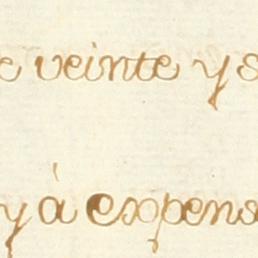 e veinte y s
y à expens